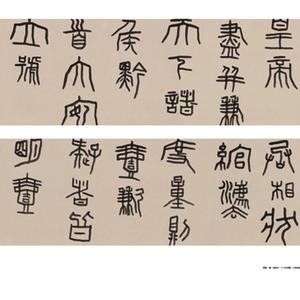 皇帝
盡并兼
天下諸
侯黔
首大安
立號
丞相狀
綰灋
度量則
壹歉
疑者皆
明壹